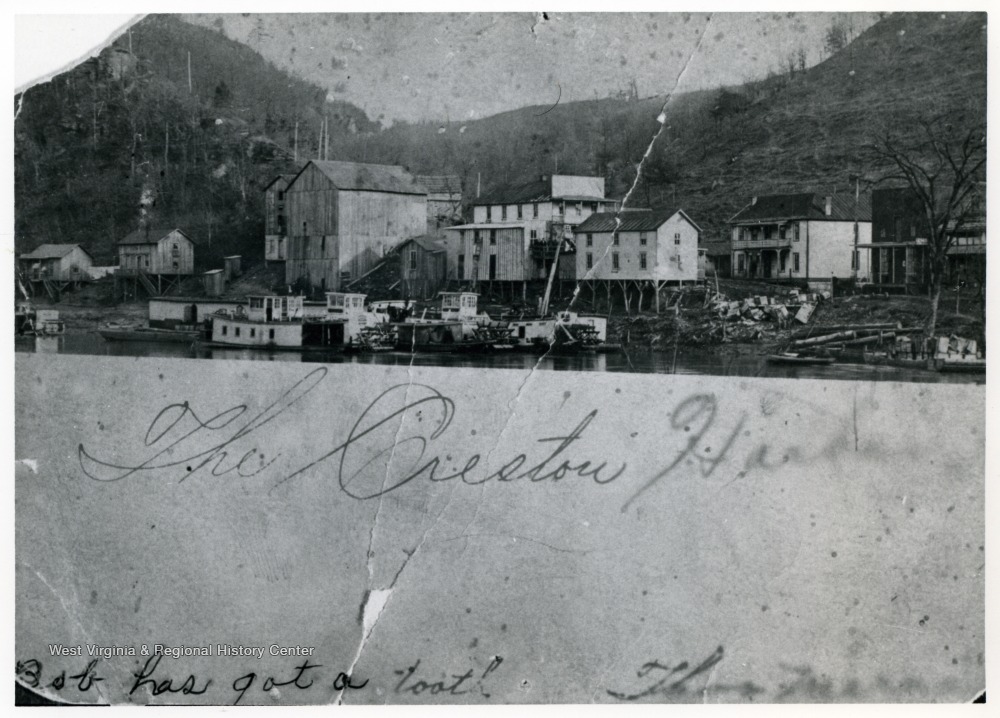 The Creston
West Virginia & Regional History Center
Bob has got a tooth